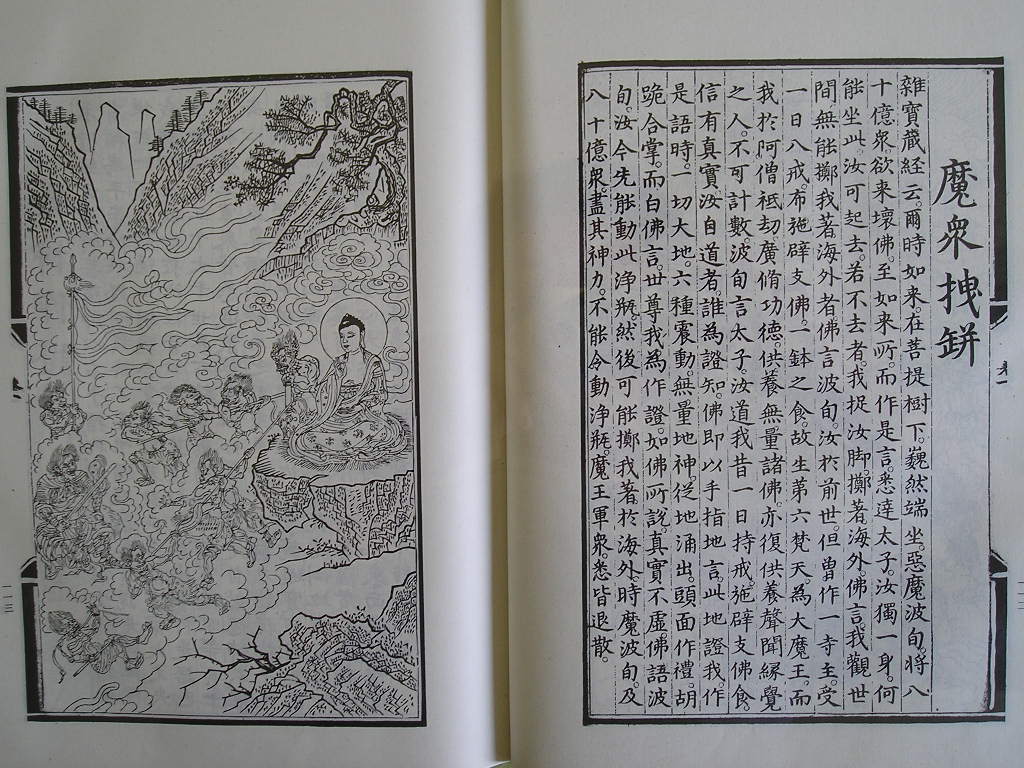 魔衆拽缾
雜寶藏經云。爾時如来。在菩提樹下。巍然端坐。惡魔波旬。將八
十億衆。欲来壞佛。至如来所。而作是言。悉達太子。汝獨一身。何
能坐此。汝可起去。若不去者。我捉汝脚。擲著海外。佛言。我觀世
間。無能擲我著海外者。佛言。波旬。汝於前世。但曾作一寺。至受
一日八戒。布施辟支佛。一鉢之食。故生第六梵天。為大魔王。而
我於阿僧祗劫。廣脩功德。供養無量諸佛。亦復供養聲聞縁覺
之人。不可計數。波旬言。太子。汝道我昔一日持戒。施辟支佛食。
信有真實。汝自道者。誰為證知。佛即以手指地言。此地證我。作
是語時。一切大地。六種震動。無量地神。從地涌出。頭面作禮。胡
跪合掌。而白佛言。世尊。我為作證。如佛所說。真實不虛。佛語波
旬。汝今先能動此浄瓶。然後可能擲我著於海外。時魔波旬及
八十億衆。盡其神力。不能令動浄瓶。魔王軍衆。悉皆退散。
卷一